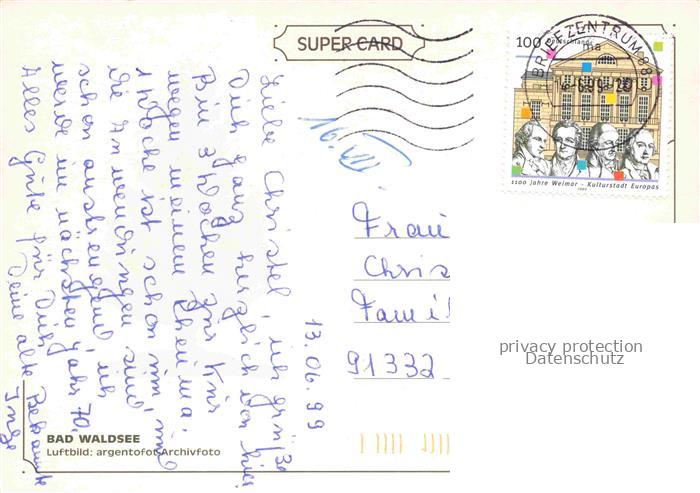 SUPER CARD
100 Deutschland
BRIEFZENTRUM 88
6.99-20
1100 Jahre Weimar - Kulturstadt Europas
1999
13.06.99
Liebe Christel, ich grüße
Dich ganz herzlich von hier
Bin 3 Wochen zur Kur
wegen meinem Rheuma.
1 Woche ist schon rum, und
die Anwendungen sind
schon anstrengend, ich
werde im nächsten Jahr 70.
Alles Gute für Dich
Deine alte Bekannte
Inge
Frau
Chris
Famil
91332
privacy protection
Datenschutz
BAD WALDSEE
Luftbild: argentofot Archivfoto